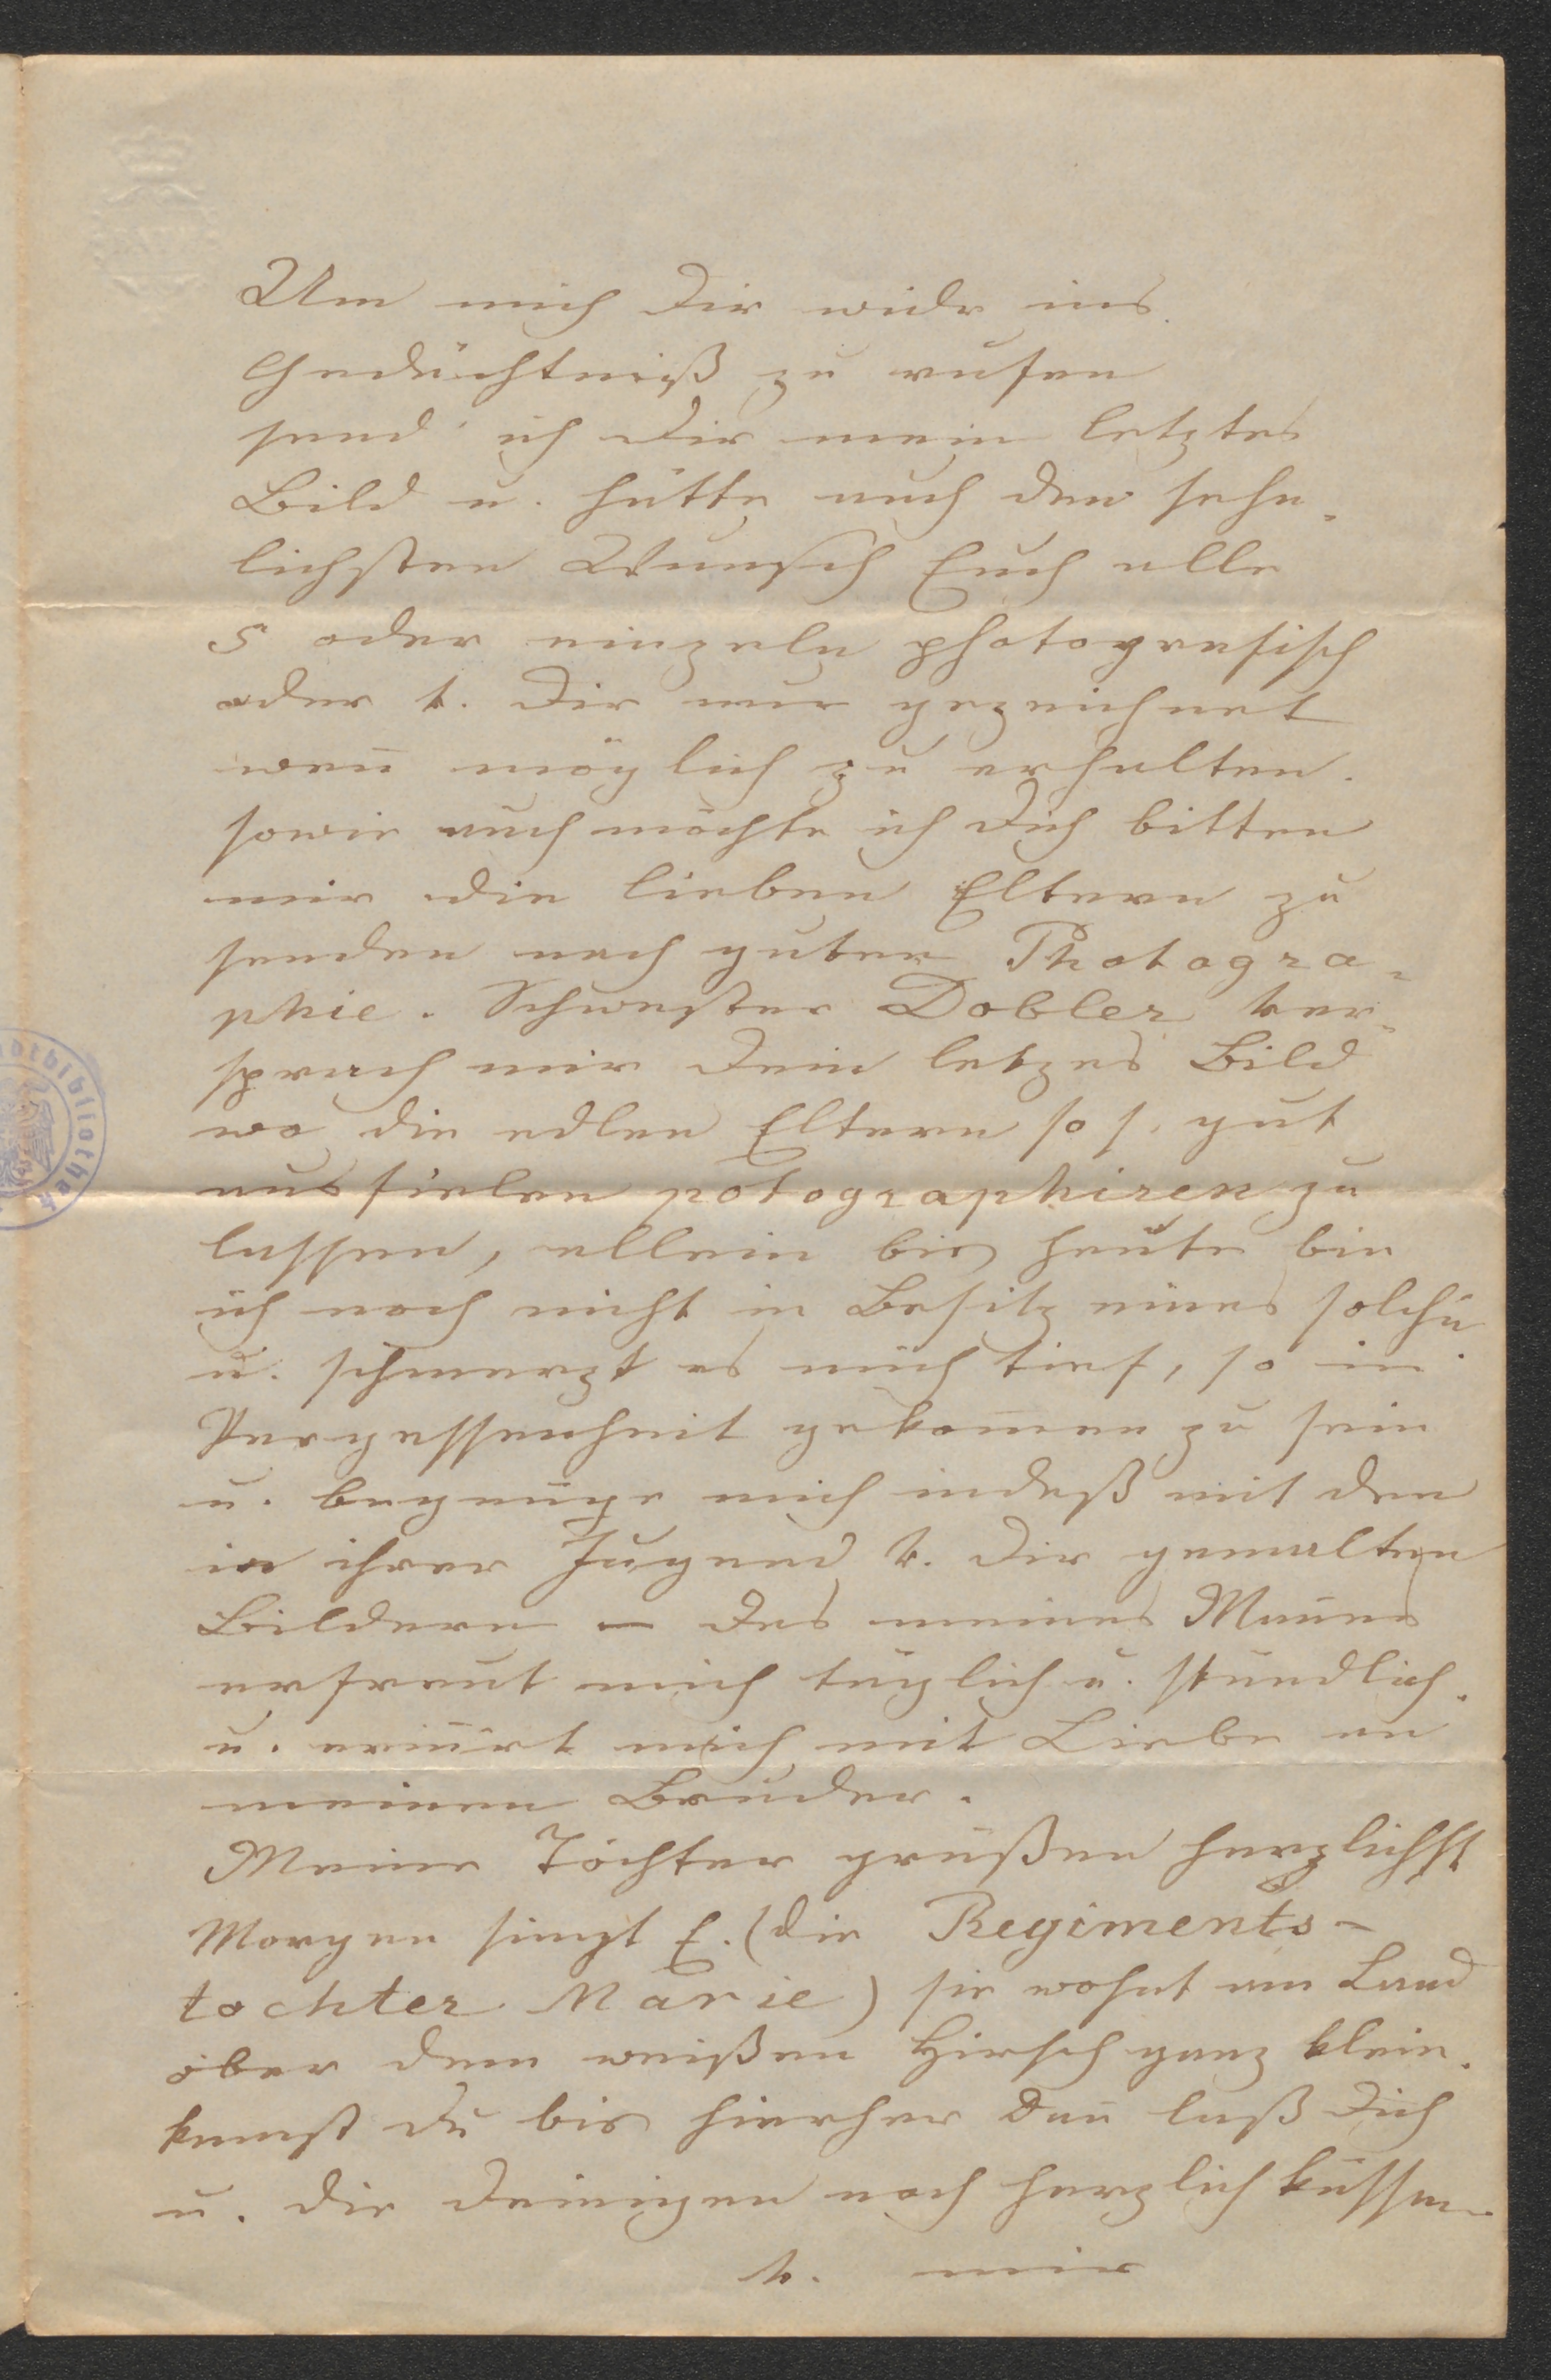 Um mich Dir widr ins
Gedächtniß zu rufen
send' ich Dir mein letztes
Bild u. hätte auch den sehn-
lichsten Wunsch Euch alle
5 oder einzeln photografisch
oder v. Dir nur gezeichnet
weñ möglich zu erhalten.
sowie auch möchte ich Dich bitten
mir die lieben Eltern zu
senden nach guter Photogra-
phie. Schwester Dobler ver-
sprach mir Dein letzes Bild
wo die edlen Eltern so s. gut
ausfielen potographiren zu
lassen, allein bis heute bin
ich noch nicht in Besitz eines solchn
u. schmerzt es mich tief, so in
Vergessenheit gekom̅en zu sein
u. begnüge mich indeß mit den
in ihrer Jugend v. Dir gemalten
Bildern – das meines Man̅es
erfreut mich täglich u. stündlich.
u. erin̅ert mich mit Liebe an
meinen Bruder.
Meine Töchter grüßen herzlichst
Morgen singt E. (die Regiments-
tochter Marie) sie wohnt am Land
ober dem weißen Hirsch ganz klein.
kom̅st du bis hierher Dan̅ laß Dich
u. die Deinigen noch herzlich küssen
v. mir